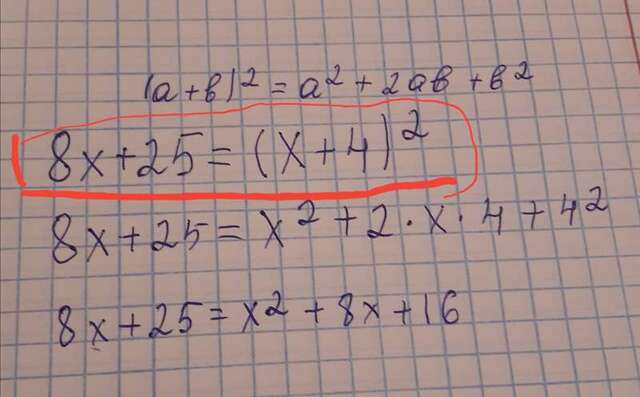 (a+b)² = a² + 2ab + b²
8x+25 = (x+4)²
8x+25 = x² + 2·x·4 + 4²
8x+25 = x² + 8x + 16